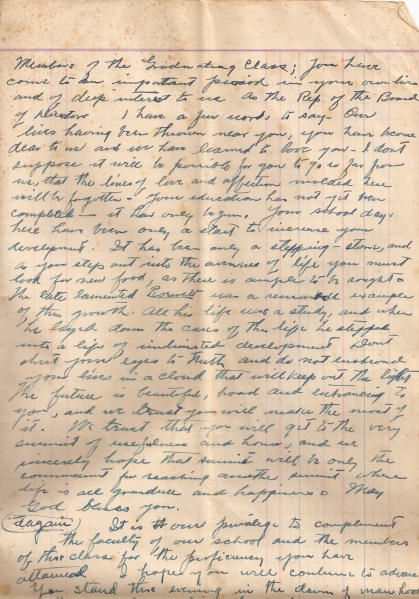 Members of the Graduating Class; You have
come to an important period in your own lives
and of deep interest to us As the Rep. of the Board
of Directors. I have a few words to say - Our
lives having been thrown near you, you have become
dear to us and we have learned to love you - I don't
suppose it will be possible for you to go so far from
us, that the lines of love and affection molded here
will be forgotten - Your education has not yet been
completed - it has only begun. Your school days
here have been only a start to increase your
development. It has been only a stepping-stone, and
as you step out into the avenues of life you must
look for new food, as there is ample to be sought.
The late lamented Roosevelt was a remarkable example
of this growth. All his life was a study, and when
he layed down the cares of this life he stepped
into a life of unlimited development Dont
shut your eyes to Truth and do not enshroud
your lives in a cloud that will keep out the light
The future is beautiful, broad and entrancing to
you, and we trust you will make the most of
it. We trust that you will get to the very
summit of usefulness and honor, and we
sincerely hope that summit will be only the
for reaching another summit where
life is all grandeur and happiness. May
God bless you.
again It is our privilege to complement
the faculty of our school and the members
of this class for the proficiency you have
attained I hope you will continue to advance
You stand this evening in the dawn of man hood